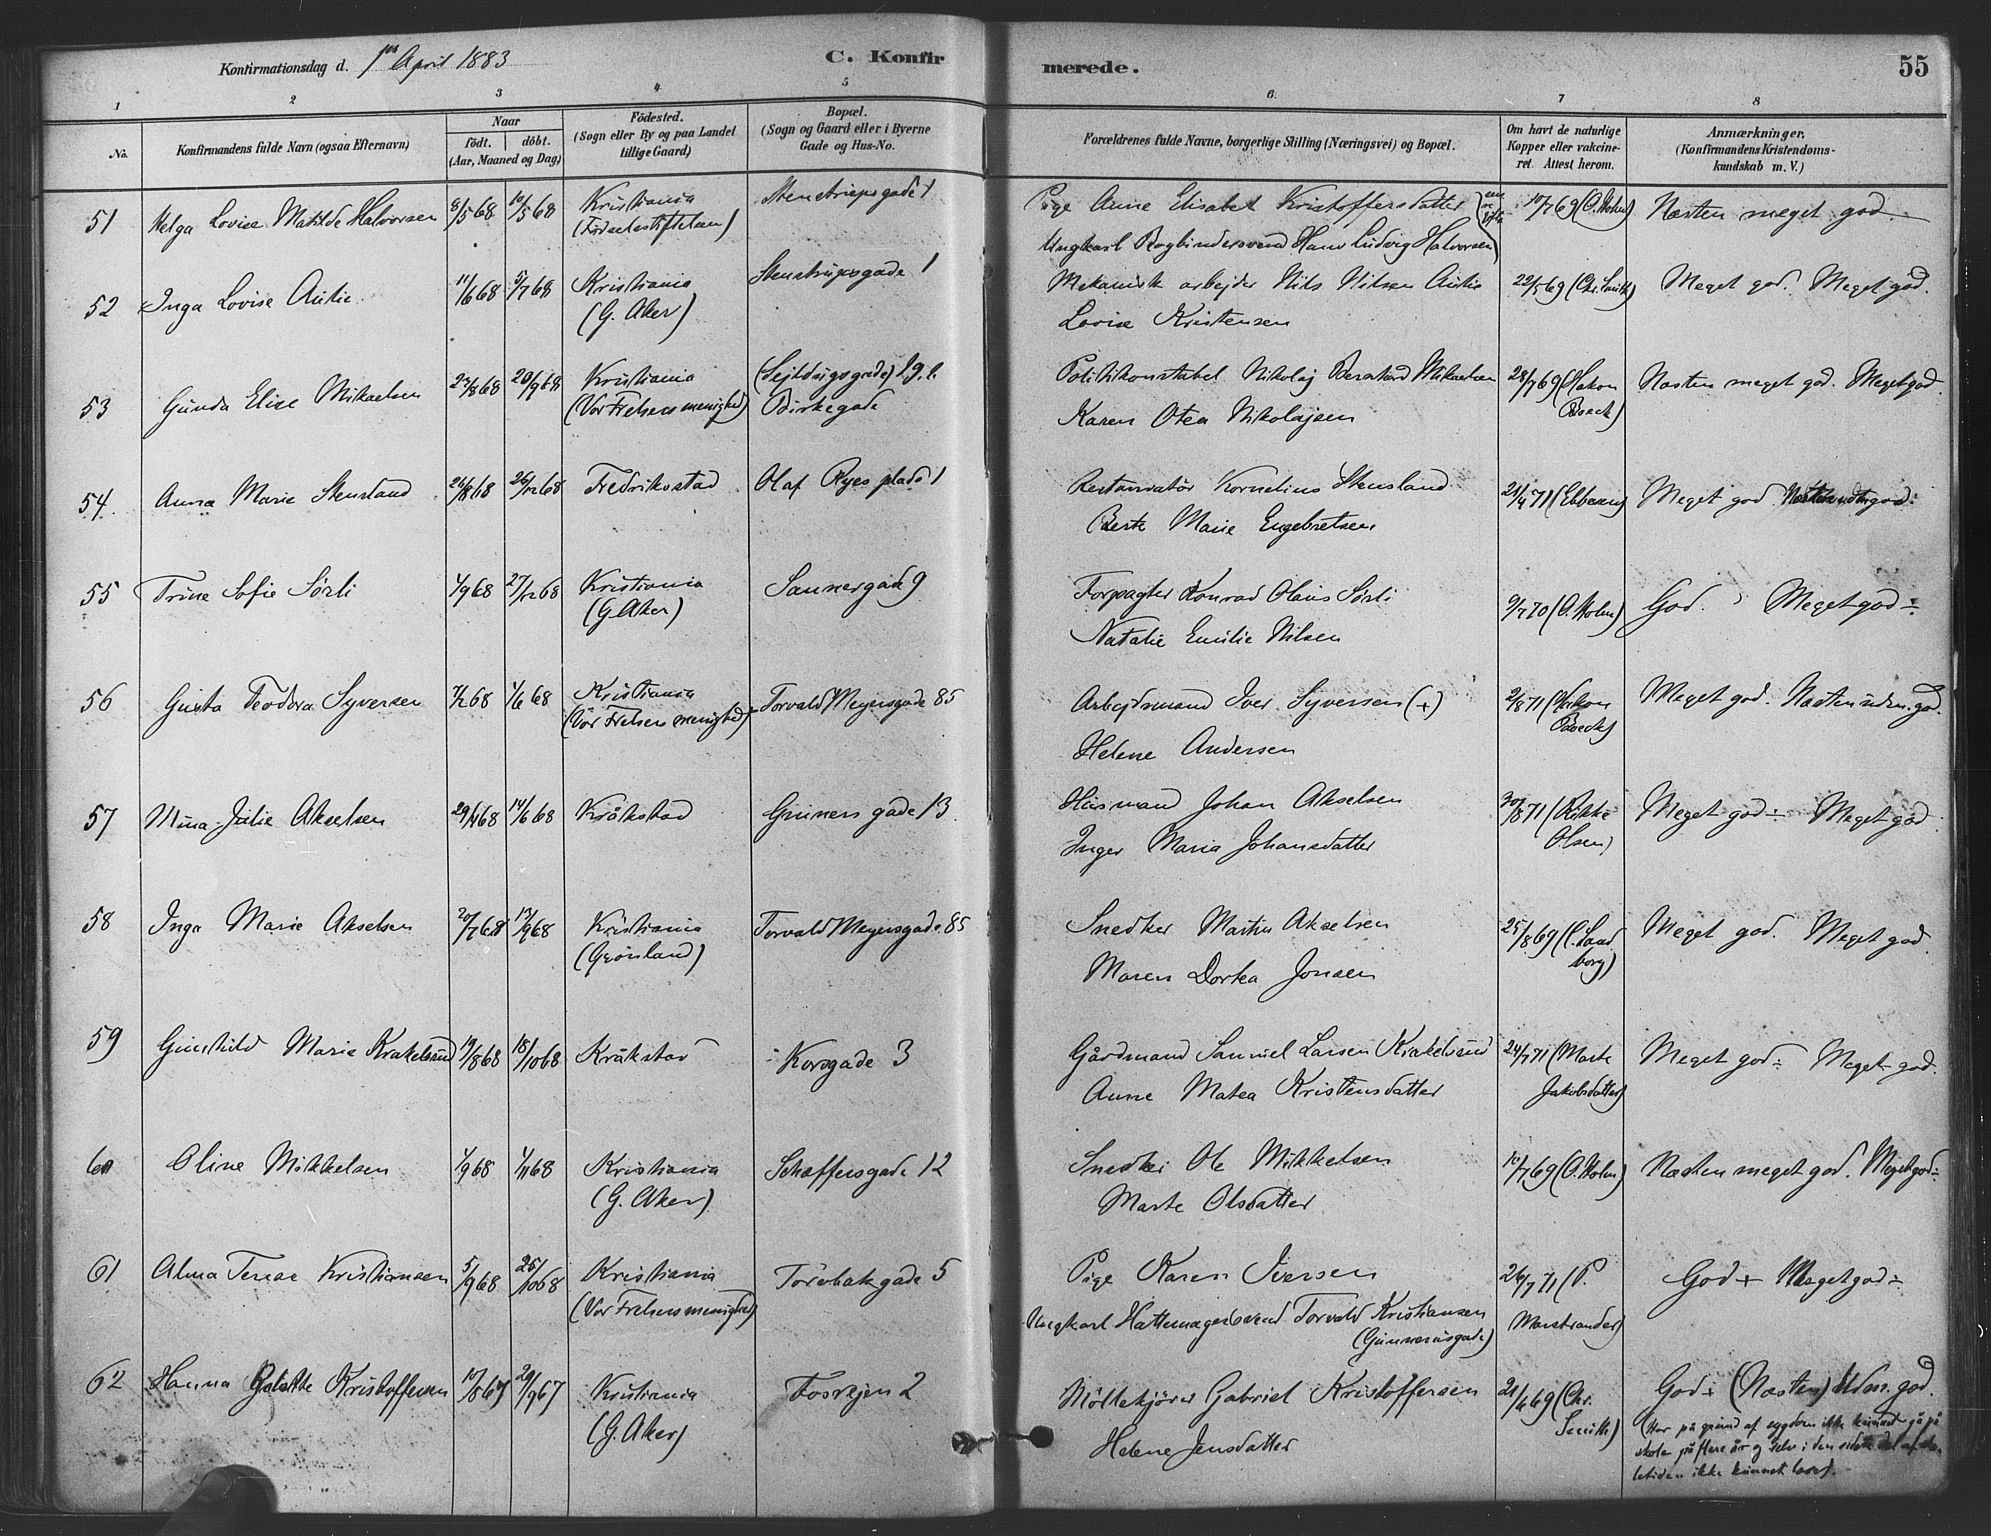 Konfirmationsdag d. 1ste April 1883 C. Konfirmerede. 55
1 2 3 4 5 6 7 8
No. Konfirmandens fulde Navn (ogsaa Efternavn) Naar født. døbt. (Aar, Maaned og Dag) Fødested. (Sogn eller By og paa Landet tillige Gaard) Bopæl. (Sogn og Gaard eller i Byerne Gade og Hus-No. Forældrenes fulde Navne, borgerlige Stilling (Næringsvei) og Bopæl. Om havt de naturlige Kopper eller vakcineret. Attest herom. Anmærkninger. (Konfirmandens Kristendomskundskab m. V.)
51 Helga Lovise Matilde Halvorsen 8/5 68 10/5 68 Kristiania Stenstrupsgade 1 Pige Anne Elisabet Kristoffersdatter 10/7 69 (O. Holm) Næsten meget god
(Fødselsstiftelsen) Ungkarl Bogbindersvend Hans Ludvig Halvorsen
52 Inga Lovise Autie 11/6 68 5/7 68 Kristiania Stenstrupsgade 1 Mekanisk arbejder Nils Nilsen Autie 22/5 69 (Chr. Smith) Meget god. Meget god.
(G. Aker) Lovise Kristensen
53 Gunda Elise Mikaelsen 22/8 68 20/9 68 Kristiania (Sejldugsgade) Politikonstabel Nikolaj Bernhard Mikaelsen 28/7 69 (Hakon Næsten meget god. Meget god.
(Vor Frelsers menighed) Birkegade Karen Otea Nikolajsen Boeck)
54. Anna Marie Stensland 26/8 68 26/12 68 Fredrikstad Olaf Ryes plads 1 Restauratør Kornelius Stensland 21/4 71 (Ebbesen) Meget god
Berte Marie Engebretsen
55 Trine Sofie Sørli 1/9 68 27/12 68 Kristiania Sannergade 9 Forpagter Konrad Olaus Sørli 9/7 70 (O. Holm) God. Meget god ÷
(G. Aker) Natalie Emilie Nilsen
56 Gusta Teodora Syversen 7/2 68 1/6 68 Kristiania Torvald Meyersgade 85 Arbejdsmand Iver Syversen (+) 2/8 71 (Hakon Meget god. Næsten udm. god.
(Vor Frelsers menighed) Helene Andersen Boeck)
57 Mina Julie Akselsen 29/4 68 14/6 68 Kråkstad Grünersgade 13 Husmand Johan Akselsen 30/8 71 (Rikke Meget god ÷ Meget god
Inger Maria Johansdatter Olsen)
58 Inga Marie Akselsen 20/7 68 13/9 68 Kristiania Torvald Meyersgade 85 Snedker Martin Akselsen 25/8 69 (C. Sand Meget god. Meget god
(Grønland) Maren Dortea Jonsen borg)
59 Gunhild Marie Krakelsrud 19/8 68 18/10 68 Kråkstad Korsgade 3 Gårdmand Samuel Larsen Krakelsrud 24/7 71 (Marte Meget god ÷ Meget god.
Anne Matea Kristensdatter Jakobsdatter)
60 Oline Mikkelsen 1/9 68 1/11 68 Kristiania Schæffersgade 12 Snedker Ole Mikkelsen 10/7 69 (O. Holm) Næsten meget god. Meget god ÷
(G. Aker) Marte Olsdatter
61 Alma Terese Kristiansen 5/9 68 25/10 68 Kristiania Torvbakgade 5 Pige Karen Iversen 26/7 71 (P. God + Meget god ÷
(Vor Frelsers menighed) Ungkarl Hattemagersvend Torvald Kristiansen Marstrander)
(Gunnerusgade)
62 Hanna Kristoffersen 10/8 67 29/9 67 Kristiania Fosvejen 2 Møllekjører Gabriel Kristoffersen 21/6 69 (Chr. God ÷ (Næsten) Udm. god.
(G. Aker) Helene Jensdatter Smith) (Har på grund af sygdom ikke kunnet gå på
skole på flere år og selv i den sidste del af
letiden ikke kunnet læse).